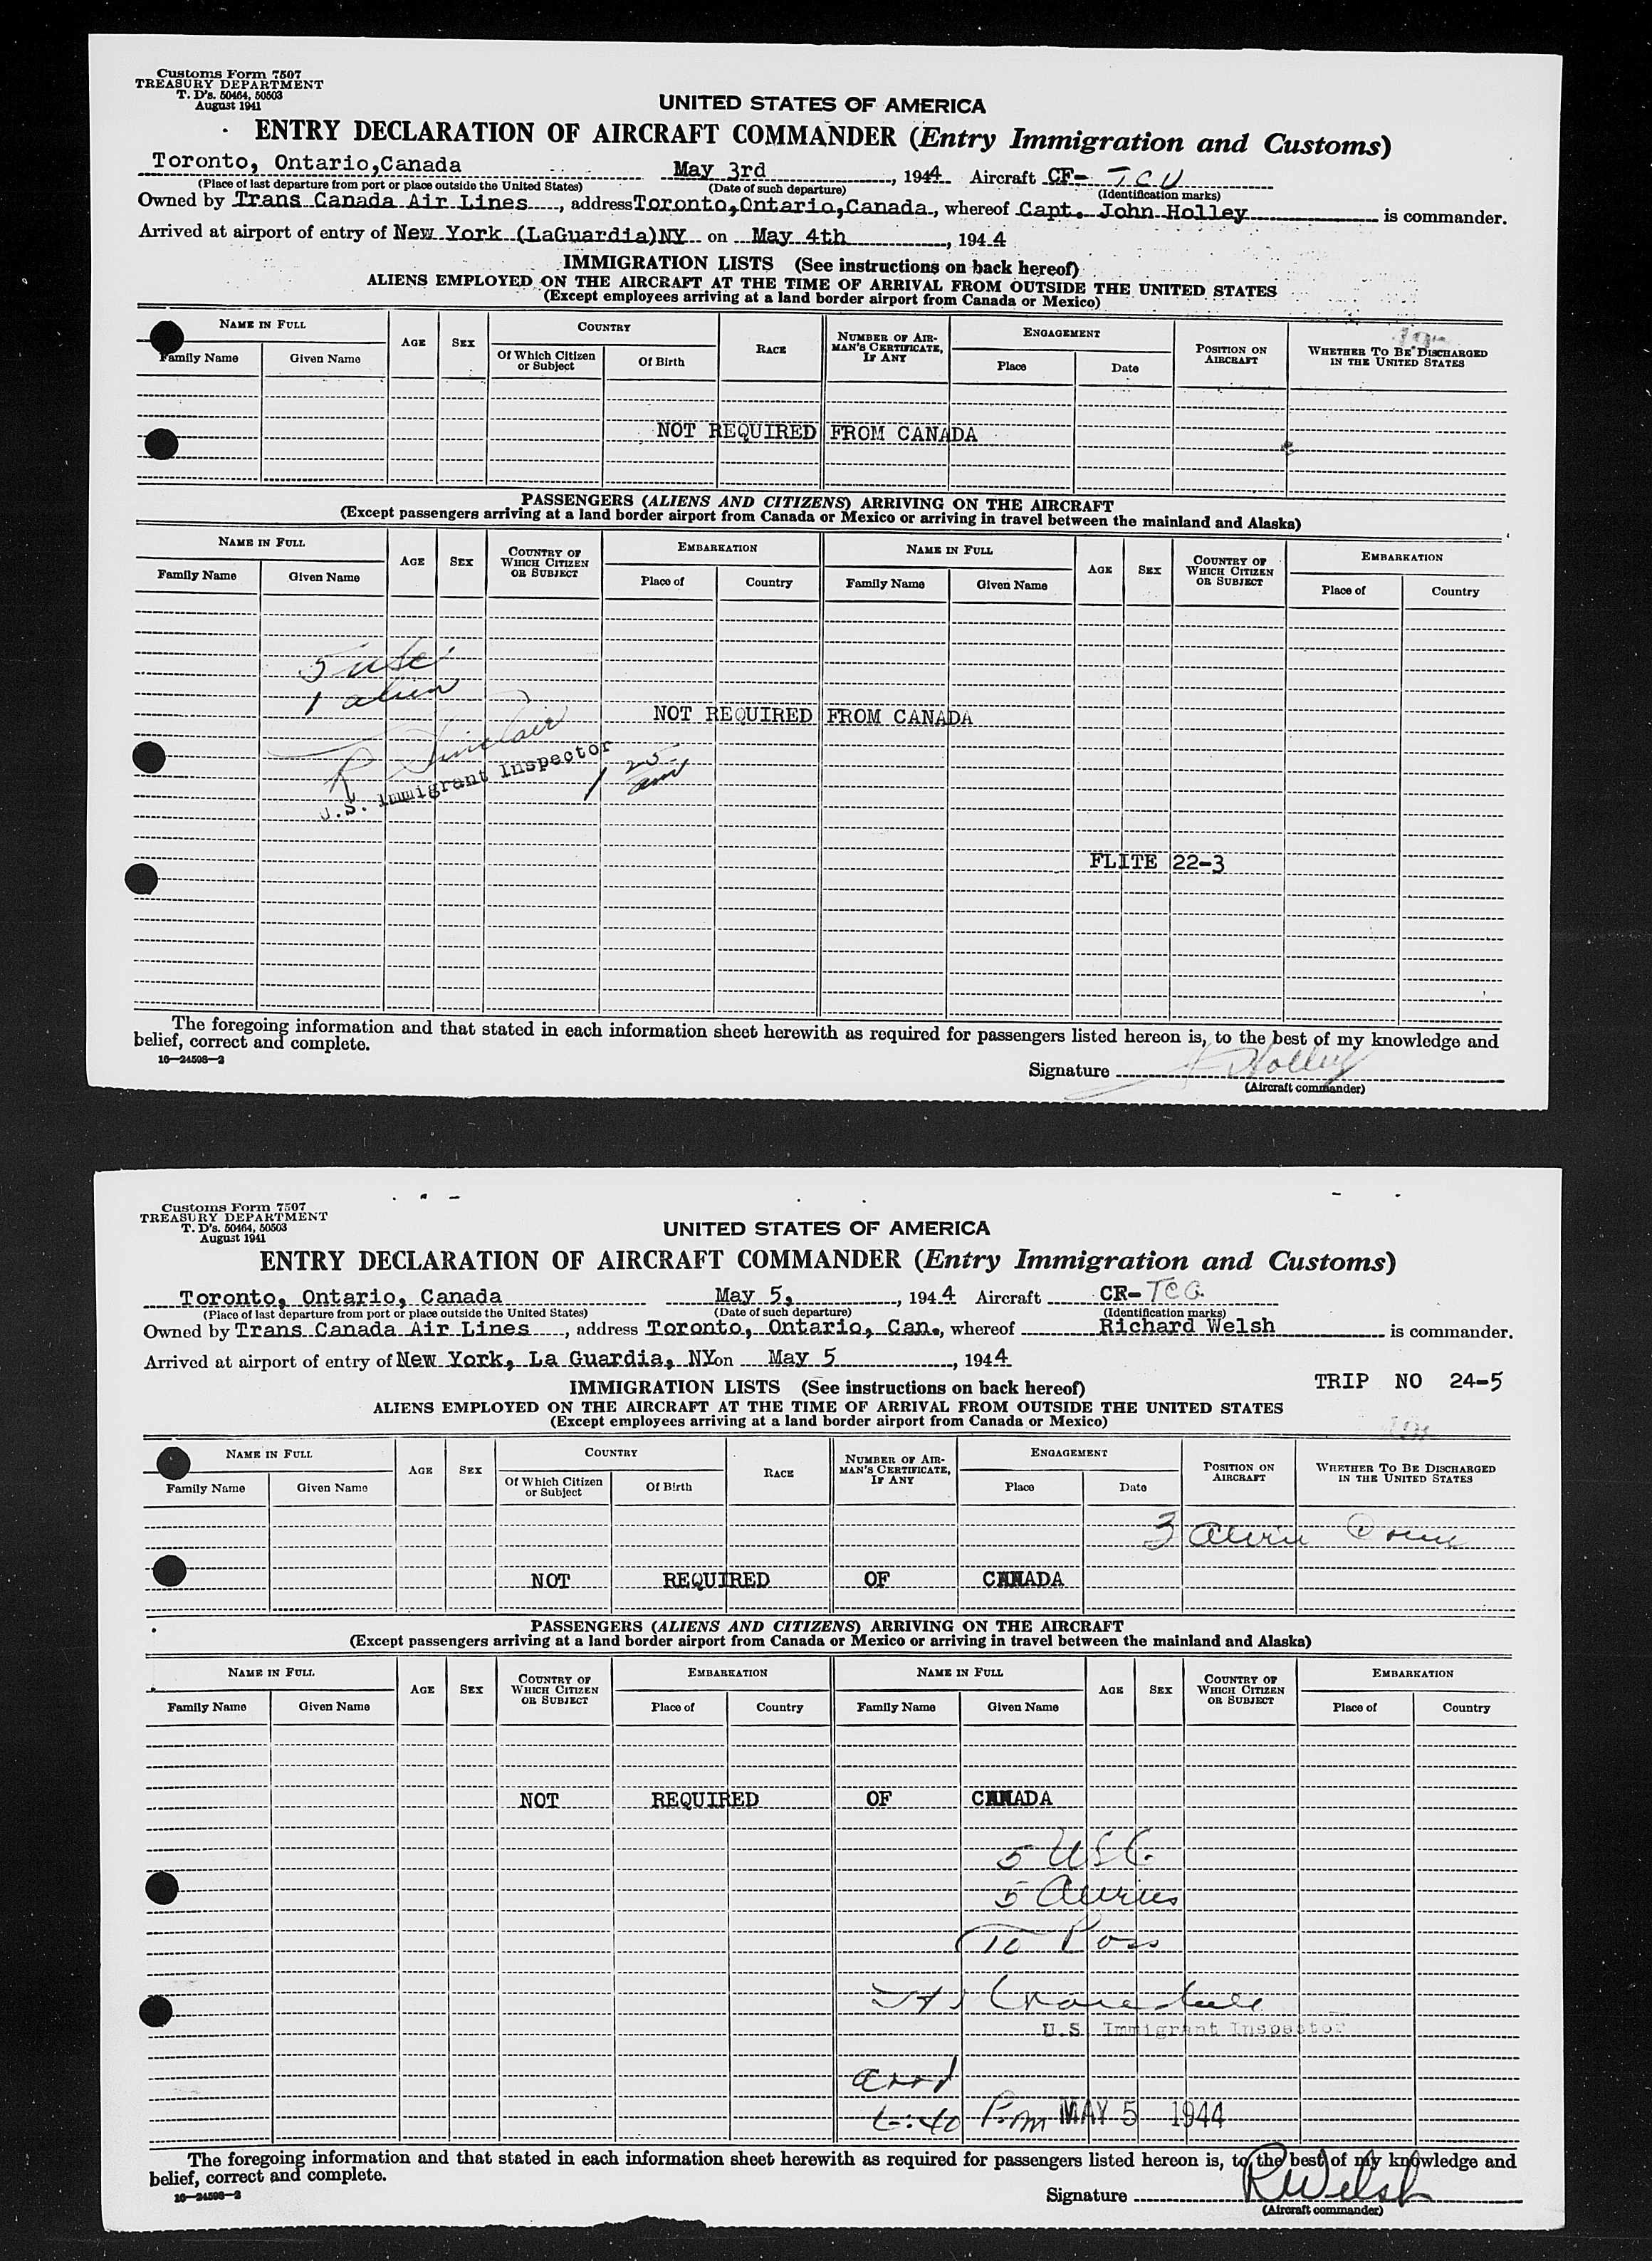 Customs Form 7507
TREASURY DEPARTMENT
T. D's. 50464, 50503
August 1941
UNITED STATES OF AMERICA
ENTRY DECLARATION OF AIRCRAFT COMMANDER (Entry Immigration and Customs)
Toronto, Ontario,Canada May 3rd, 1944 Aircraft CF- TCU
(Place of last departure from port or place outside the United States) (Date of such departure) (Identification marks)
Owned by Trans Canada Air Lines, address Toronto,Ontario,Canada, whereof Capt. John Holley is commander.
Arrived at airport of entry of New York (LaGuardia)NY on May 4th, 1944
IMMIGRATION LISTS (See instructions on back hereof)
ALIENS EMPLOYED ON THE AIRCRAFT AT THE TIME OF ARRIVAL FROM OUTSIDE THE UNITED STATES
(Except employees arriving at a land border airport from Canada or Mexico)
NAME IN FULL AGE SEX COUNTRY RACE NUMBER OF AIRMAN'S CERTIFICATE, IF ANY ENGAGEMENT POSITION ON AIRCRAFT WHETHER TO BE DISCHARGED IN THE UNITED STATES
Family Name Given Name Of Which Citizen or Subject Of Birth Place Date
NOT REQUIRED FROM CANADA
PASSENGERS (ALIENS AND CITIZENS) ARRIVING ON THE AIRCRAFT
(Except passengers arriving at a land border airport from Canada or Mexico or arriving in travel between the mainland and Alaska)
NAME IN FULL AGE SEX COUNTRY OF WHICH CITIZEN OR SUBJECT EMBARKATION NAME IN FULL AGE SEX COUNTRY OF WHICH CITIZEN OR SUBJECT EMBARKATION
Family Name Given Name Place of Country Family Name Given Name Place of Country
5 USC
1 alien
NOT REQUIRED FROM CANADA
R Sinclair
U.S. Immigrant Inspector
1 25 am
FLITE 22-3
The foregoing information and that stated in each information sheet herewith as required for passengers listed hereon is, to the best of my knowledge and
belief, correct and complete.
16—24598-2
Signature J Holley
(Aircraft commander)
Customs Form 7507
TREASURY DEPARTMENT
T. D's. 50464, 50503
August 1941
UNITED STATES OF AMERICA
ENTRY DECLARATION OF AIRCRAFT COMMANDER (Entry Immigration and Customs)
Toronto, Ontario, Canada May 5, 1944 Aircraft CR- TCG
(Place of last departure from port or place outside the United States) (Date of such departure) (Identification marks)
Owned by Trans Canada Air Lines, address Toronto, Ontario, Can., whereof Richard Welsh is commander.
Arrived at airport of entry of New York, La Guardia, NY on May 5, 1944
IMMIGRATION LISTS (See instructions on back hereof) TRIP NO 24-5
ALIENS EMPLOYED ON THE AIRCRAFT AT THE TIME OF ARRIVAL FROM OUTSIDE THE UNITED STATES
(Except employees arriving at a land border airport from Canada or Mexico)
NAME IN FULL AGE SEX COUNTRY RACE NUMBER OF AIRMAN'S CERTIFICATE, IF ANY ENGAGEMENT POSITION ON AIRCRAFT WHETHER TO BE DISCHARGED IN THE UNITED STATES
Family Name Given Name Of Which Citizen or Subject Of Birth Place Date
3 alien
NOT REQUIRED OF CANADA
PASSENGERS (ALIENS AND CITIZENS) ARRIVING ON THE AIRCRAFT
(Except passengers arriving at a land border airport from Canada or Mexico or arriving in travel between the mainland and Alaska)
NAME IN FULL AGE SEX COUNTRY OF WHICH CITIZEN OR SUBJECT EMBARKATION NAME IN FULL AGE SEX COUNTRY OF WHICH CITIZEN OR SUBJECT EMBARKATION
Family Name Given Name Place of Country Family Name Given Name Place of Country
NOT REQUIRED OF CANADA
5 USC.
5 Aliens
10 Pass
U.S. Immigrant Inspector
arrd
6:40 P.m MAY 5 1944
The foregoing information and that stated in each information sheet herewith as required for passengers listed hereon is, to the best of my knowledge and
belief, correct and complete.
16—24598-2
Signature R Welsh
(Aircraft commander)